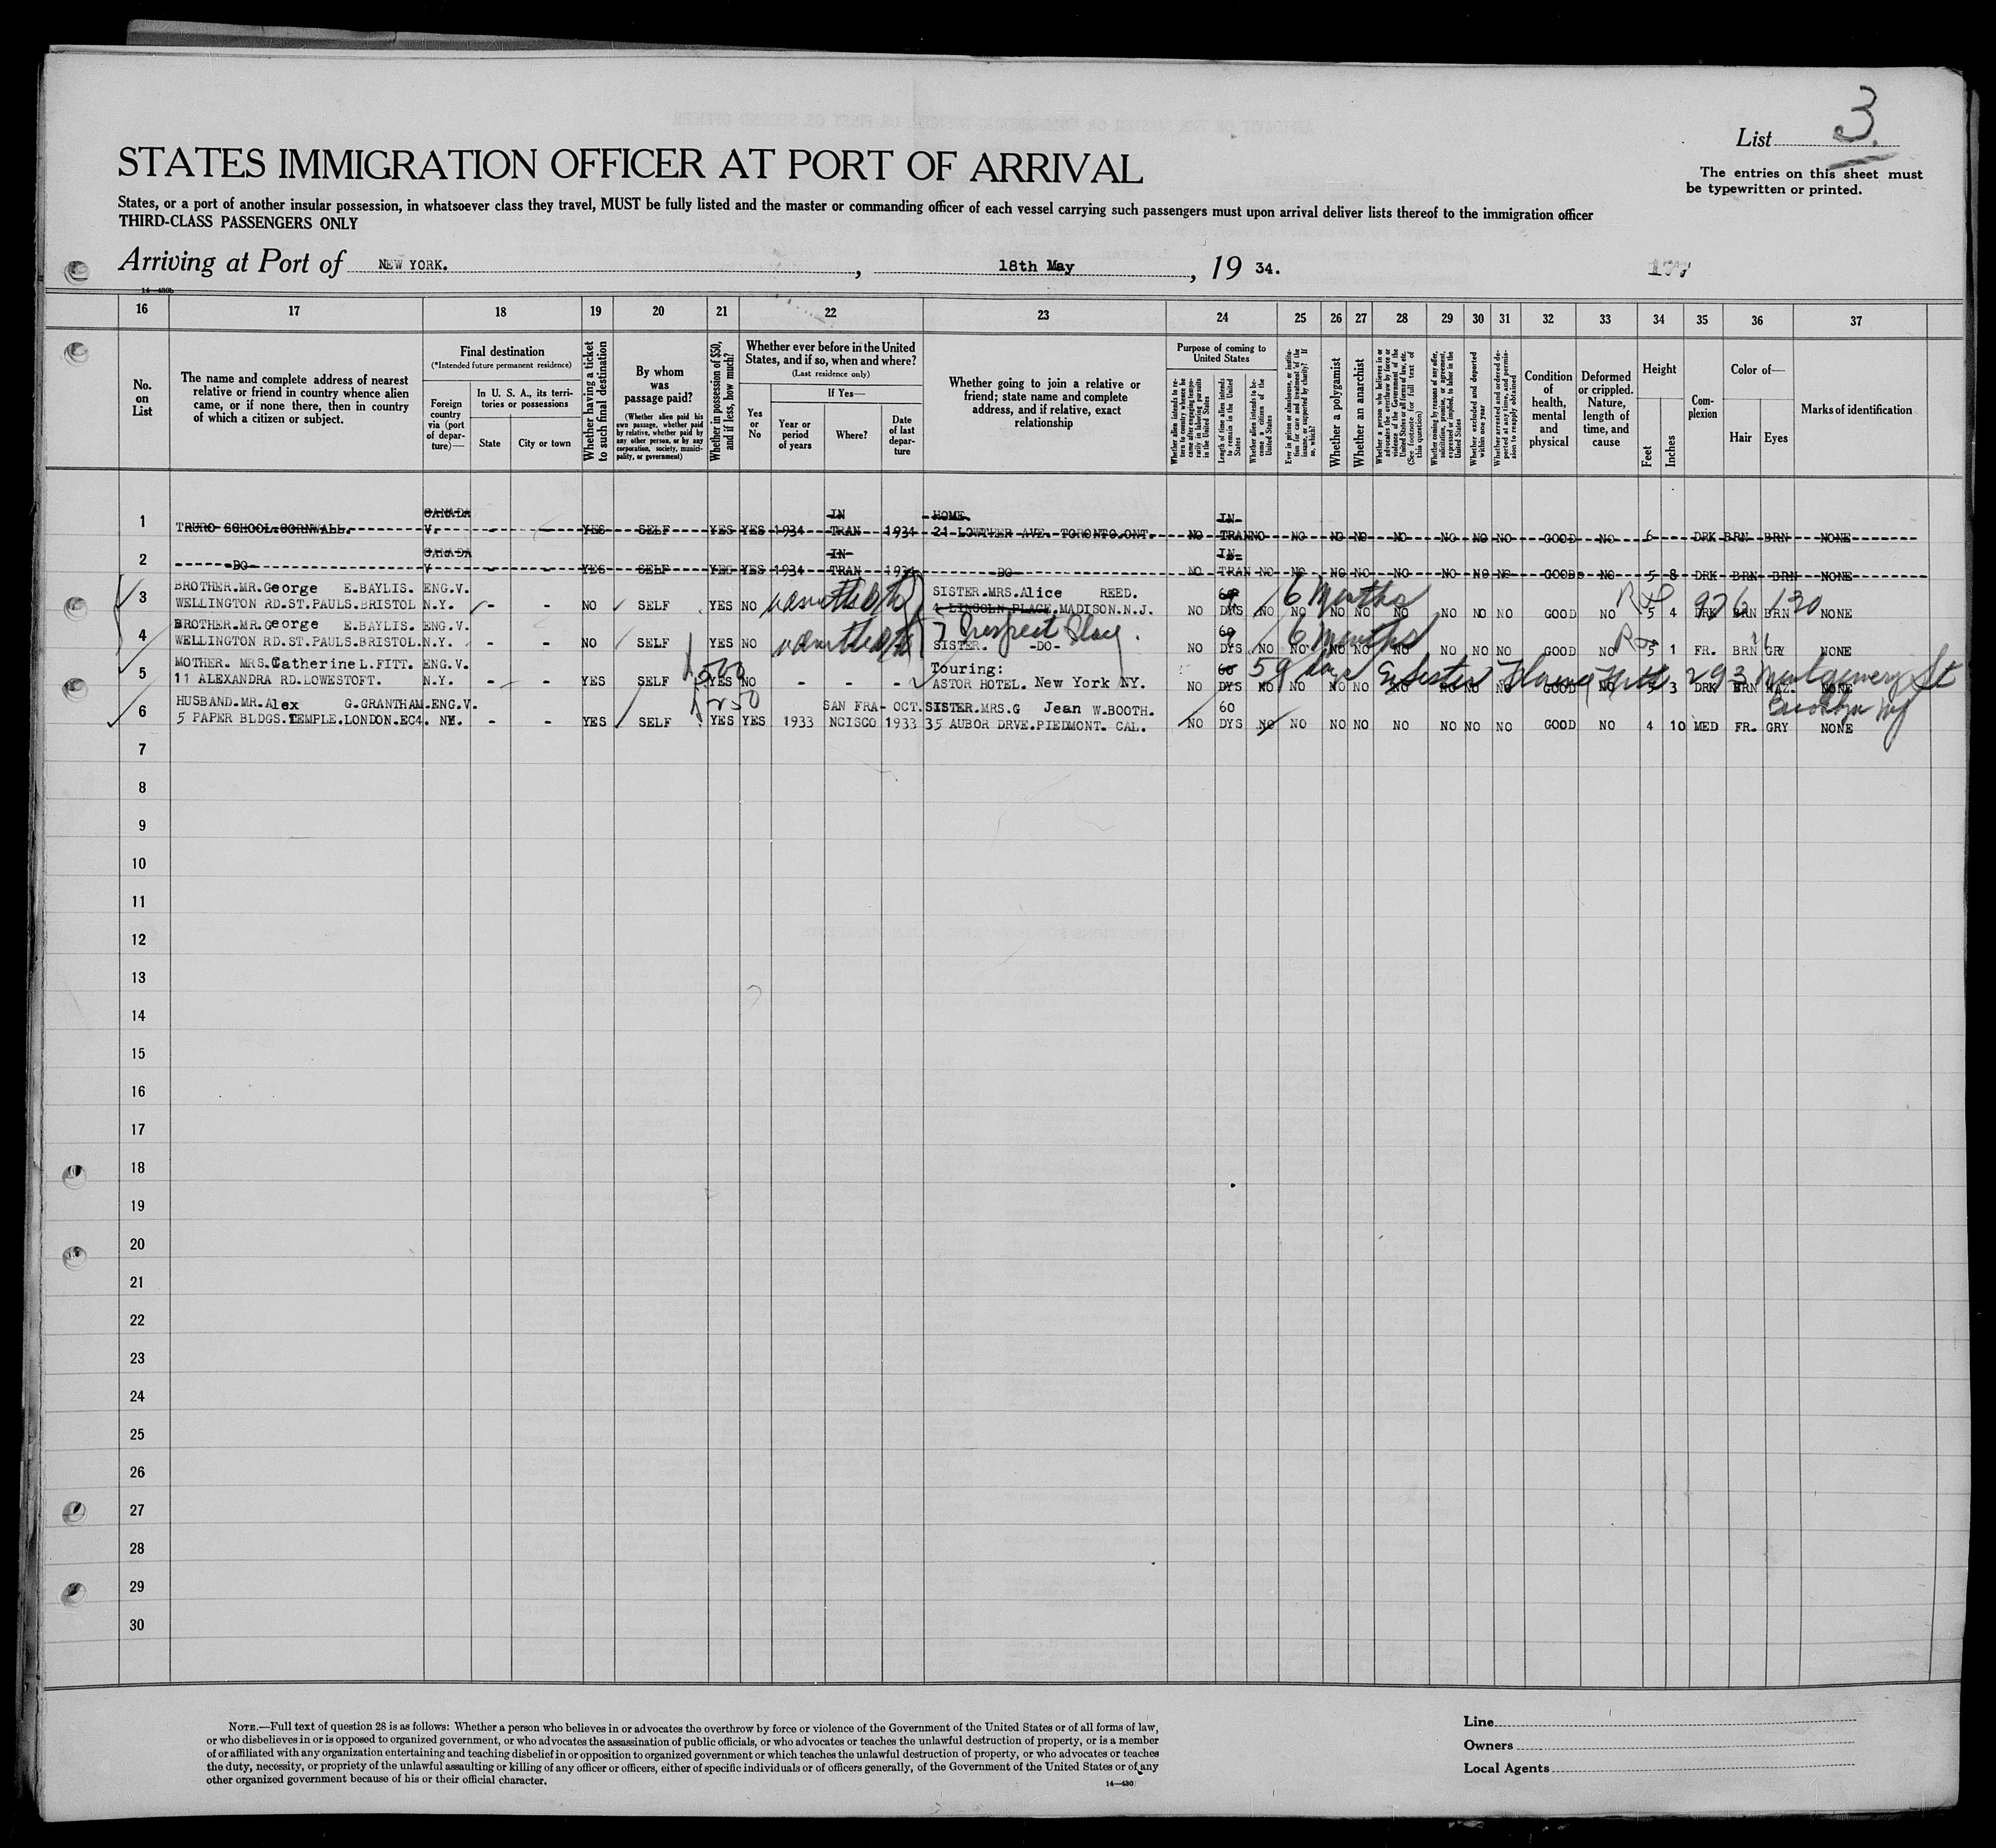 List 3.
The entries on this sheet must
be typewritten or printed.
STATES IMMIGRATION OFFICER AT PORT OF ARRIVAL
States, or a port of another insular possession, in whatsoever class they travel, MUST be fully listed and the master or commanding officer of each vessel carrying such passengers must upon arrival deliver lists thereof to the immigration officer
THIRD-CLASS PASSENGERS ONLY
Arriving at Port of NEW YORK. , 18th May , 19 34.
14—430b
16 17 18 19 20 21 22 23 24 25 26 27 28 29 30 31 32 33 34 35 36 37
No. on List
The name and complete address of nearest
relative or friend in country whence alien
came, or if none there, then in country
of which a citizen or subject.
Final destination
(*Intended future permanent residence)
Foreign country via (port of departure)—
In U. S. A., its territories or possessions
State
City or town
Whether having a ticket to such final destination
By whom was passage paid?
(Whether alien paid his own passage, whether paid by relative, whether paid by any other person, or by any corporation, society, municipality, or government)
Whether in possession of $50, and if less, how much?
Whether ever before in the United States, and if so, when and where?
(Last residence only)
Yes or No
If Yes—
Year or period of years
Where?
Date of last departure
Whether going to join a relative or
friend; state name and complete
address, and if relative, exact
relationship
Purpose of coming to United States
Whether alien intends to return to country whence he came after engaging temporarily in laboring pursuits in the United States
Length of time alien intends to remain in the United States
Whether alien intends to become a citizen of the United States
Ever in prison or almshouse, or institution for care and treatment of the insane, or supported by charity? If so, which?
Whether a polygamist
Whether an anarchist
Whether a person who believes in or advocates the overthrow by force or violence of the Government of the United States or all forms of law, etc. (See footnote for full text of this question)
Whether coming by reasons of any offer, solicitation, promise, or agreement, expressed or implied, to labor in the United States
Whether excluded and deported within one year
Whether arrested and ordered deported at any time, and permission to reapply obtained
Condition of health, mental and physical
Deformed or crippled. Nature, length of time, and cause
Height
Feet
Inches
Complexion
Color of—
Hair
Eyes
Marks of identification
1 TRURO SCHOOL.CORNWALL. CANADA V. - - YES SELF YES YES 1934 IN TRAN 1934 HOME. 21 LOWTHER AVE. TORONTO.ONT. NO IN- TRAN NO NO NO NO NO NO NO NO GOOD NO 6 DRK BRN BRN NONE
2 -DO- CANADA V - - YES SELF YES YES 1934 IN- TRAN 1934 -DO- NO IN- TRAN NO NO NO NO NO NO NO NO GOOD NO 5 8 DRK BRN BRN NONE
3 BROTHER.MR.George E.BAYLIS. ENG.V. SISTER.MRS.Alice REED. 60 6 Months
WELLINGTON RD.ST.PAULS.BRISTOL N.Y. - - NO SELF YES NO 4 LINCOLN PLACE.MADISON.N.J. NO DYS NO NO NO NO NO NO NO NO GOOD NO 5 4 DRK BRN BRN NONE
4 BROTHER.MR.George E.BAYLIS. ENG.V. 7 Prospect Place. 60 6 Months
WELLINGTON RD.ST.PAULS.BRISTOL. N.Y. - - NO SELF YES NO SISTER. -DO- NO DYS NO NO NO NO NO NO NO NO GOOD NO 5 1 FR. BRN GRY NONE
5 MOTHER. MRS.Catherine L.FITT. ENG.V. 500 Touring: 60 59 days Sister 293 Montgomery St
11 ALEXANDRA RD.LOWESTOFT. N.Y. - - YES SELF YES NO - - - ASTOR HOTEL. New York NY. NO DYS NO NO NO NO NO NO NO NO GOOD NO 5 3 DRK BRN HAZ. NONE
6 HUSBAND.MR.Alex G.GRANTHAM. ENG.V. 250 SAN FRA- OCT. SISTER.MRS.G Jean W.BOOTH. 60
5 PAPER BLDGS.TEMPLE.LONDON.EC4. NY. - - YES SELF YES YES 1933 NCISCO 1933 35 AUBOR DRVE.PIEDMONT. CAL. NO DYS NO NO NO NO NO NO NO NO GOOD NO 4 10 MED FR. GRY NONE
7
8
9
10
11
12
13
14
15
16
17
18
19
20
21
22
23
24
25
26
27
28
29
30
NOTE.—Full text of question 28 is as follows: Whether a person who believes in or advocates the overthrow by force or violence of the Government of the United States or of all forms of law,
or who disbelieves in or is opposed to organized government, or who advocates the assassination of public officials, or who advocates or teaches the unlawful destruction of property, or is a member
of or affiliated with any organization entertaining and teaching disbelief in or opposition to organized government or which teaches the unlawful destruction of property, or who advocates or teaches
the duty, necessity, or propriety of the unlawful assaulting or killing of any officer or officers, either of specific individuals or of officers generally, of the Government of the United States or of any
other organized government because of his or their official character.
14—430
Line
Owners
Local Agents